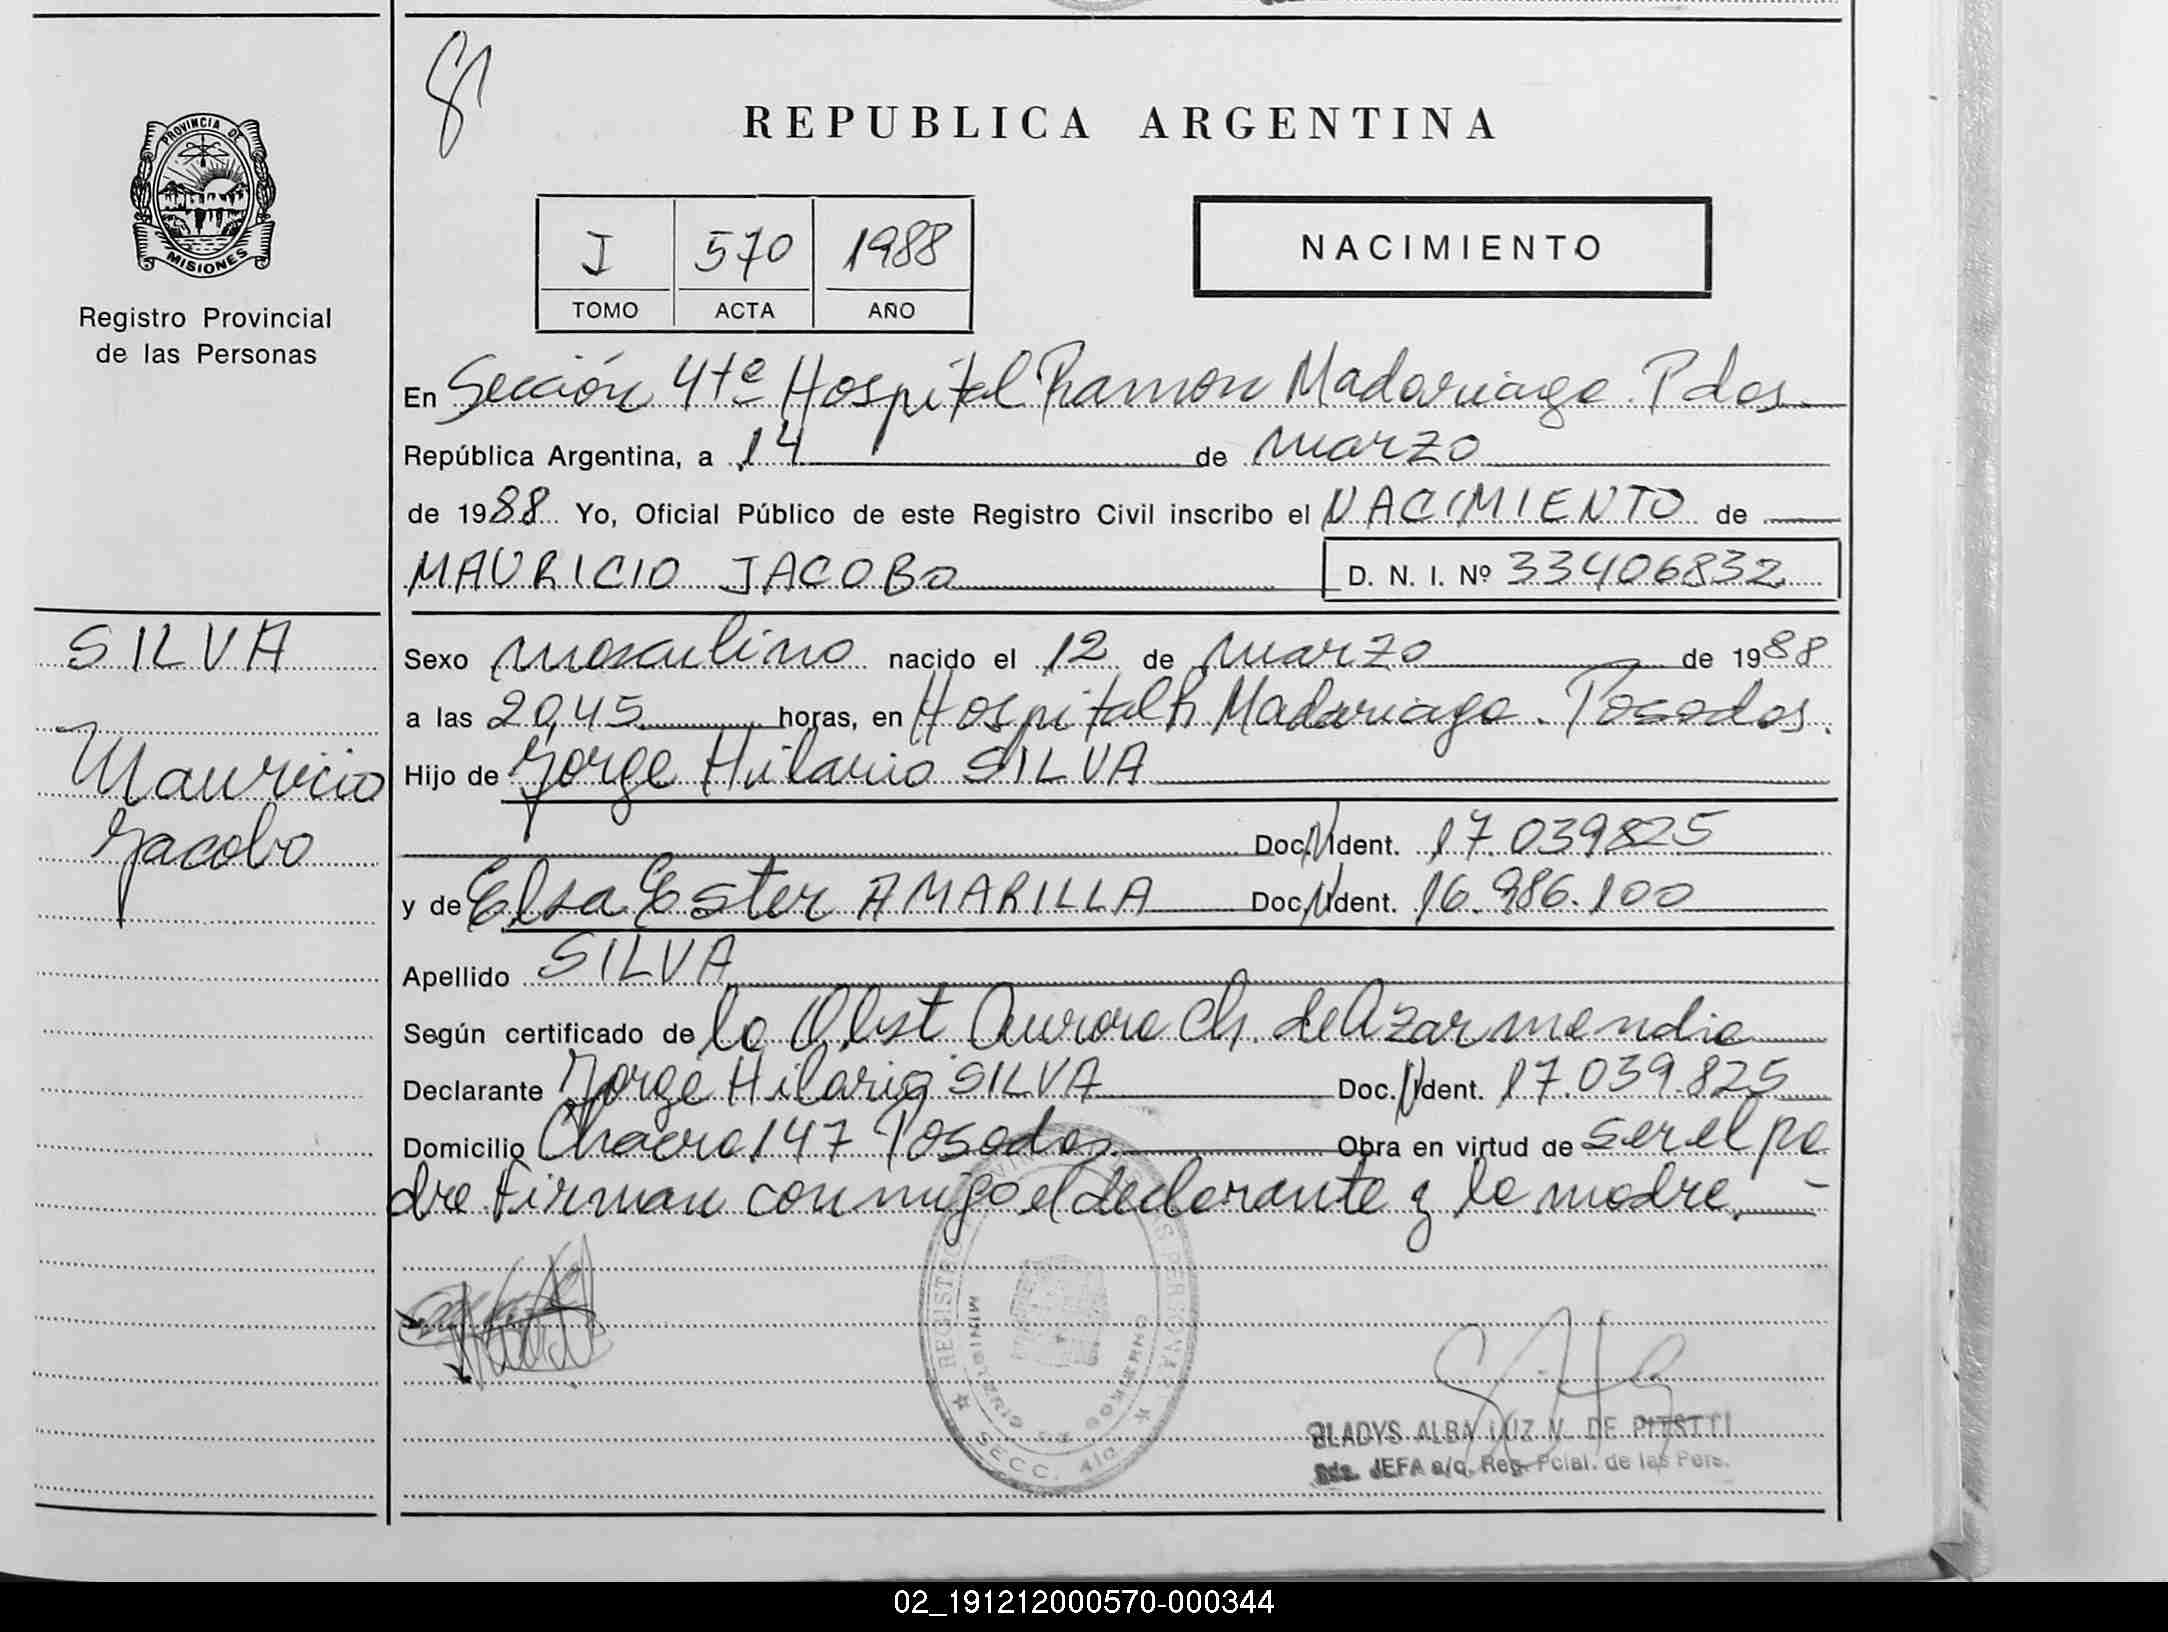 REPUBLICA ARGENTINA
PROVINCIA DE
MISIONES
Registro Provincial
de las Personas
J 570 1988
TOMO ACTA AÑO
NACIMIENTO
En Sección 4ta Hospital Ramon Madariaga. Pdas.
República Argentina, a 14 de marzo
de 1988 Yo, Oficial Público de este Registro Civil inscribo el NACIMIENTO de
MAURICIO JACOBO D. N. I. Nº 33406832
SILVA
Mauricio
Jacobo
Sexo masculino nacido el 12 de marzo de 1988
a las 20,45 horas, en Hospital R Madariaga. Posadas.
Hijo de Jorge Hilario SILVA
Doc. Ident. 17.039825
y de Elsa Ester AMARILLA Doc. Ident. 16.986.100
Apellido SILVA
Según certificado de la Obst Aurora Ch. de Azarmendia
Declarante Jorge Hilario SILVA Doc. Ident. 17.039.825
Domicilio Chacra 147 Posadas. Obra en virtud de ser el pa
dre firman conmigo el declarante y la madre.
REGISTRO PERSONAS
MINISTERIO GOBIERNO
SECC. 4ta
GLADYS ALBA LUZ V. DE
JEFA a/c. Reg. Pcial. de las Pers.
02_191212000570-000344